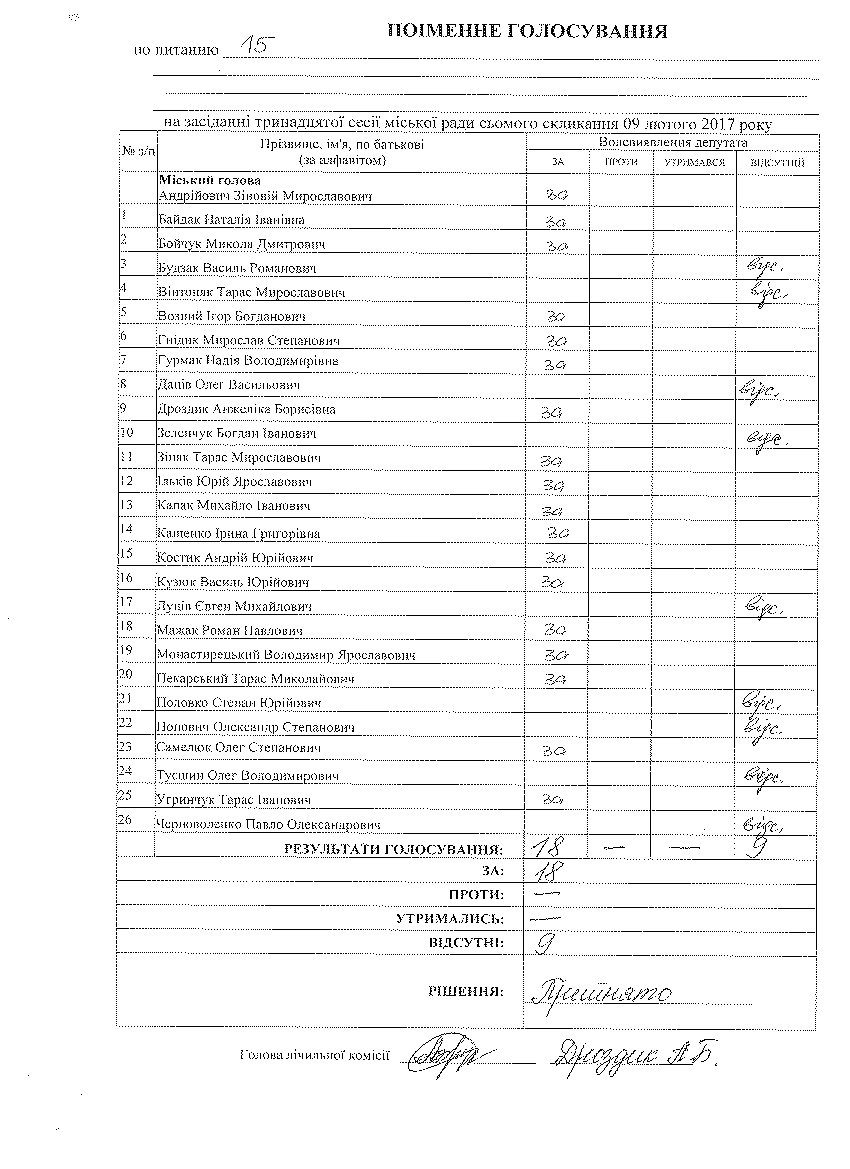 ПОІМЕННЕ ГОЛОСУВАННЯ
по питанню 15
на засіданні тринадцятої сесії міської ради сьомого скликання 09 лютого 2017 року
№ з/п Прізвище, ім'я, по батькові (за алфавітом) Волевиявлення депутата
ЗА ПРОТИ УТРИМАВСЯ ВІДСУТНІЙ
Міський голова
Андрійович Зіновій Мирославович за
1 Байдак Наталія Іванівна за
2 Бойчук Микола Дмитрович за
3 Будзак Василь Романович відс.
4 Вінтоняк Тарас Мирославович відс.
5 Возний Ігор Богданович за
6 Гнідик Мирослав Степанович за
7 Гурмак Надія Володимирівна за
8 Даців Олег Васильович відс.
9 Дроздик Анжеліка Борисівна за
10 Зеленчук Богдан Іванович відс.
11 Зіняк Тарас Мирославович за
12 Ільків Юрій Ярославович за
13 Капак Михайло Іванович за
14 Кащенко Ірина Григорівна за
15 Костик Андрій Юрійович за
16 Кузюк Василь Юрійович за
17 Луців Євген Михайлович відс.
18 Мажак Роман Павлович за
19 Монастирецький Володимир Ярославович за
20 Пекарський Тарас Миколайович за
21 Половко Степан Юрійович відс.
22 Попович Олександр Степанович відс.
23 Самелюк Олег Степанович за
24 Тусшин Олег Володимирович відс.
25 Угринчук Тарас Іванович за
26 Черноволенко Павло Олександрович відс.
РЕЗУЛЬТАТИ ГОЛОСУВАННЯ: 18 — — 9
ЗА: 18
ПРОТИ: —
УТРИМАЛИСЬ: —
ВІДСУТНІ: 9
РІШЕННЯ: Прийнято
Голова лічильної комісії Дроздик А.Б.